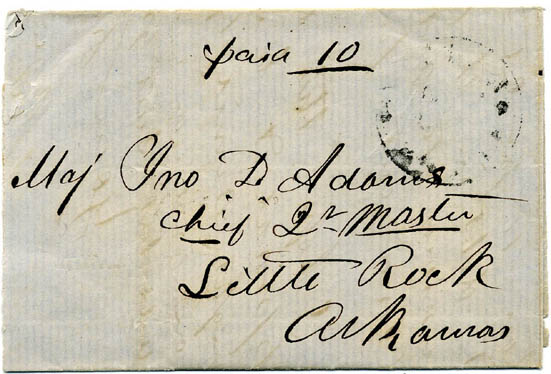 paid 10
Maj Jno D Adams
chief Qr Master
Little Rock
Arkansas